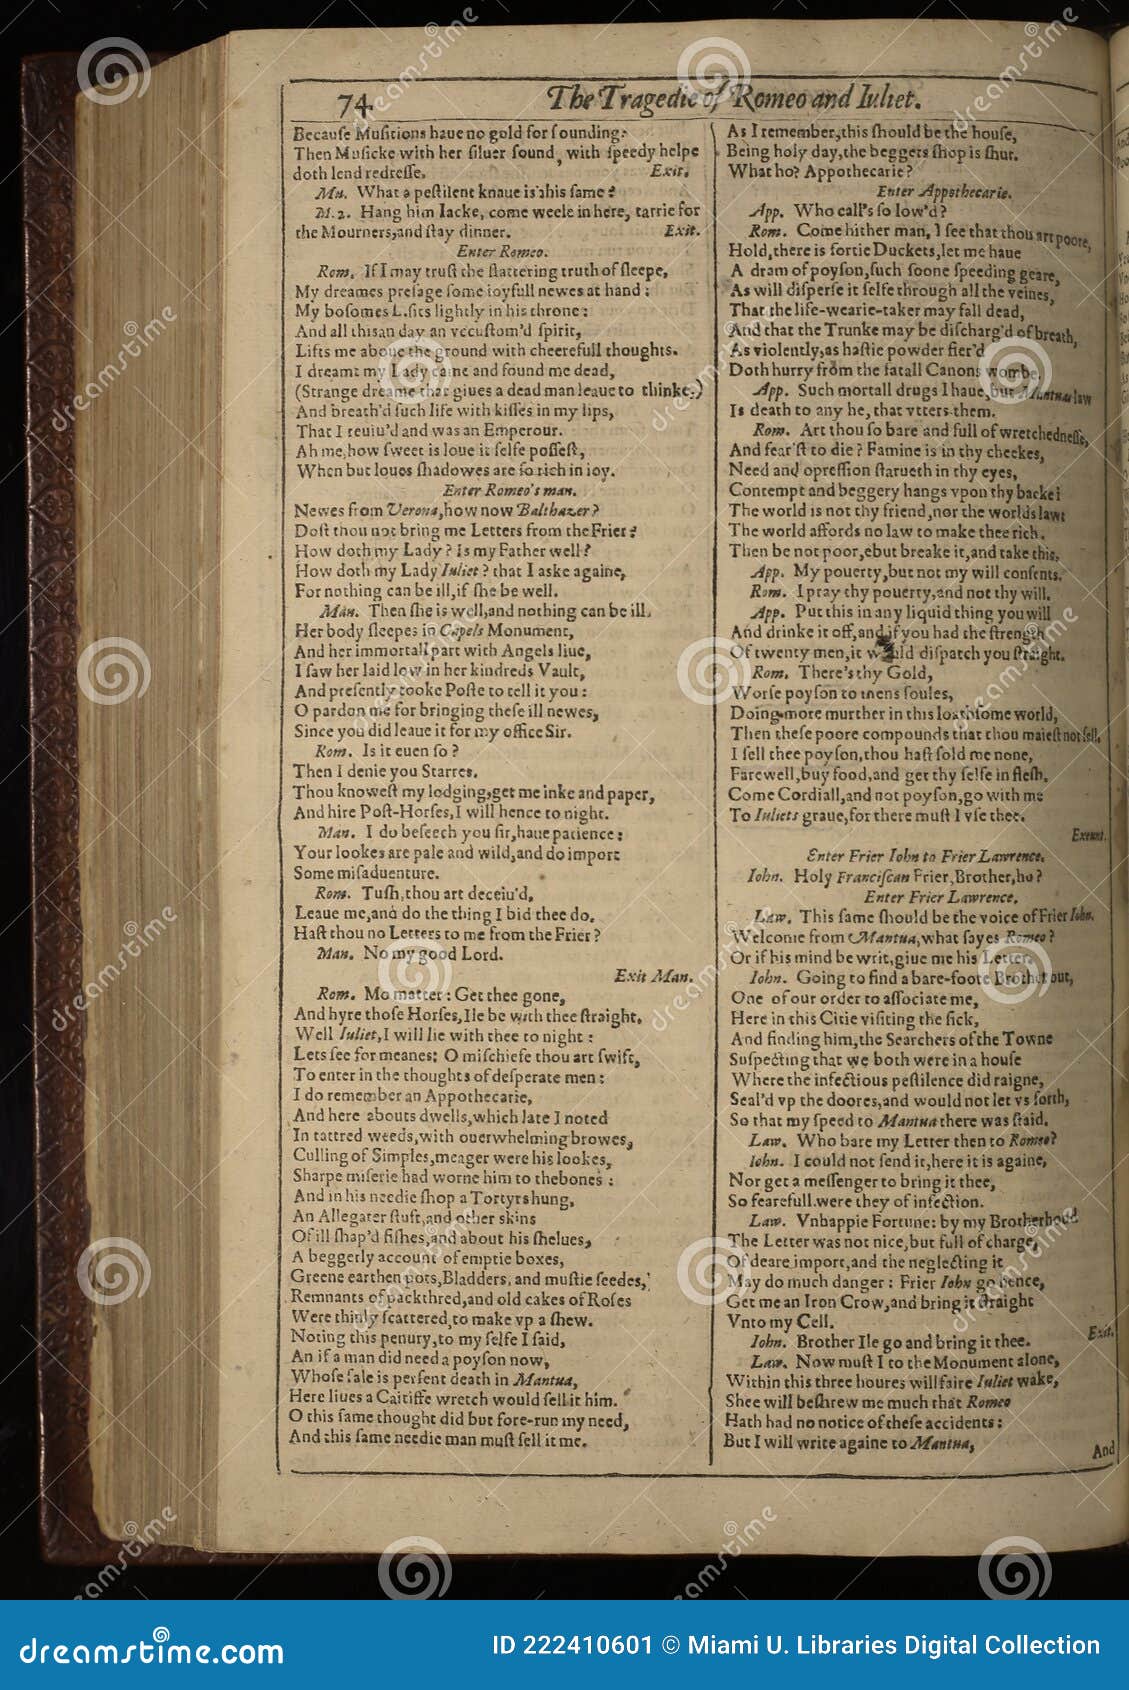 74
The Tragedie of Romeo and Iuliet.
Becauſe Muſitions haue no gold for ſounding:
Then Muſicke with her ſiluer ſound, with ſpeedy helpe
doth lend redreſſe. Exit.
Mu. What a peſtilent knaue is this ſame?
M.2. Hang him Iacke, come weele in here, tarrie for
the Mourners, and ſtay dinner. Exit.
Enter Romeo.
Rom. If I may truſt the flattering truth of ſleepe,
My dreames preſage ſome ioyfull newes at hand:
My boſomes L. ſits lightly in his throne:
And all thisan day an vccuſtom'd ſpirit,
Lifts me aboue the ground with cheerefull thoughts.
I dreamt my Lady came and found me dead,
(Strange dreame that giues a dead man leaue to thinke,)
And breath'd ſuch life with kiſſes in my lips,
That I reuiu'd and was an Emperour.
Ah me, how ſweet is loue it ſelfe poſſeſt,
When but loues ſhadowes are ſo rich in ioy.
Enter Romeo's man.
Newes from Verona, how now Balthazer?
Doſt thou not bring me Letters from the Frier?
How doth my Lady? Is my Father well?
How doth my Lady Iuliet? that I aske againe,
For nothing can be ill, if ſhe be well.
Man. Then ſhe is well, and nothing can be ill.
Her body ſleepes in Capels Monument,
And her immortall part with Angels liue,
I ſaw her laid low in her kindreds Vault,
And preſently tooke Poſte to tell it you:
O pardon me for bringing theſe ill newes,
Since you did leaue it for my office Sir.
Rom. Is it euen ſo?
Then I denie you Starres.
Thou knoweſt my lodging, get me inke and paper,
And hire Poſt-Horſes, I will hence to night.
Man. I do beſeech you ſir, haue patience:
Your lookes are pale and wild, and do import
Some miſaduenture.
Rom. Tuſh, thou art deceiu'd,
Leaue me, and do the thing I bid thee do.
Haſt thou no Letters to me from the Frier?
Man. No my good Lord.
Exit Man.
Rom. Mo matter: Get thee gone,
And hyre thoſe Horſes, Ile be with thee ſtraight,
Well Iuliet, I will lie with thee to night:
Lets ſee for meanes: O miſchiefe thou art ſwift,
To enter in the thoughts of deſperate men:
I do remember an Appothecarie,
And here abouts dwells, which late I noted
In tattred weeds, with ouerwhelming browes,
Culling of Simples, meager were his lookes,
Sharpe miſerie had worne him to the bones:
And in his needie ſhop a Tortyrs hung,
An Allegater ſtuft, and other skins
Of ill ſhap'd fiſhes, and about his ſhelues,
A beggerly account of emptie boxes,
Greene earthen pots, Bladders, and muſtie ſeedes,
Remnants of packthred, and old cakes of Roſes
Were thinly ſcattered, to make vp a ſhew.
Noting this penury, to my ſelfe I ſaid,
An if a man did need a poyſon now,
Whoſe ſale is perſent death in Mantua,
Here liues a Caitiffe wretch would ſell it him.
O this ſame thought did but fore-run my need,
And this ſame needie man muſt ſell it me.
As I remember, this ſhould be the houſe,
Being holy day, the beggers ſhop is ſhut.
What ho? Appothecarie?
Enter Appothecarie.
App. Who call's ſo low'd?
Rom. Come hither man, I ſee that thou art poore,
Hold, there is fortie Duckets, let me haue
A dram of poyſon, ſuch ſoone ſpeeding geare,
As will diſperſe it ſelfe through all the veines,
That the life-wearie-taker may fall dead,
And that the Trunke may be diſcharg'd of breath,
As violently, as haſtie powder fier'd
Doth hurry from the fatall Canons wombe.
App. Such mortall drugs I haue, but Mantuas law
Is death to any he, that vtters them.
Rom. Art thou ſo bare and full of wretchedneſſe,
And fear'ſt to die? Famine is in thy cheekes,
Need and opreſſion ſtarueth in thy eyes,
Contempt and beggery hangs vpon thy backe:
The world is not thy friend, nor the worlds law:
The world affords no law to make thee rich.
Then be not poore, but breake it, and take this.
App. My pouerty, but not my will conſents.
Rom. I pray thy pouerty, and not thy will.
App. Put this in any liquid thing you will
And drinke it off, and if you had the ſtrength
Of twenty men, it would diſpatch you ſtraight.
Rom. There's thy Gold,
Worſe poyſon to mens ſoules,
Doing more murther in this loathſome world,
Then theſe poore compounds that thou maieſt not ſell,
I ſell thee poyſon, thou haſt ſold me none,
Farewell, buy food, and get thy ſelfe in fleſh.
Come Cordiall, and not poyſon, go with me
To Iuliets graue, for there muſt I vſe thee.
Exeunt.
Enter Frier Iohn to Frier Lawrence.
Iohn. Holy Franciſcan Frier, Brother, ho?
Enter Frier Lawrence.
Law. This ſame ſhould be the voice of Frier Iohn.
Welcome from Mantua, what ſayes Romeo?
Or if his mind be writ, giue me his Letter.
Iohn. Going to find a bare-foote Brother out,
One of our order to aſſociate me,
Here in this Citie viſiting the ſick,
And finding him, the Searchers of the Towne
Suſpecting that we both were in a houſe
Where the infectious peſtilence did raigne,
Seal'd vp the doores, and would not let vs forth,
So that my ſpeed to Mantua there was ſtaid.
Law. Who bare my Letter then to Romeo?
Iohn. I could not ſend it, here it is againe,
Nor get a meſſenger to bring it thee,
So fearefull were they of infection.
Law. Vnhappie Fortune: by my Brotherhood
The Letter was not nice, but full of charge,
Of deare import, and the neglecting it
May do much danger: Frier Iohn go hence,
Get me an Iron Crow, and bring it ſtraight
Vnto my Cell. Exit.
Iohn. Brother Ile go and bring it thee.
Law. Now muſt I to the Monument alone,
Within this three houres will faire Iuliet wake,
Shee will beſhrew me much that Romeo
Hath had no notice of theſe accidents:
But I will write againe to Mantua,
And
dreamstime.com
ID 222410601 © Miami U. Libraries Digital Collection